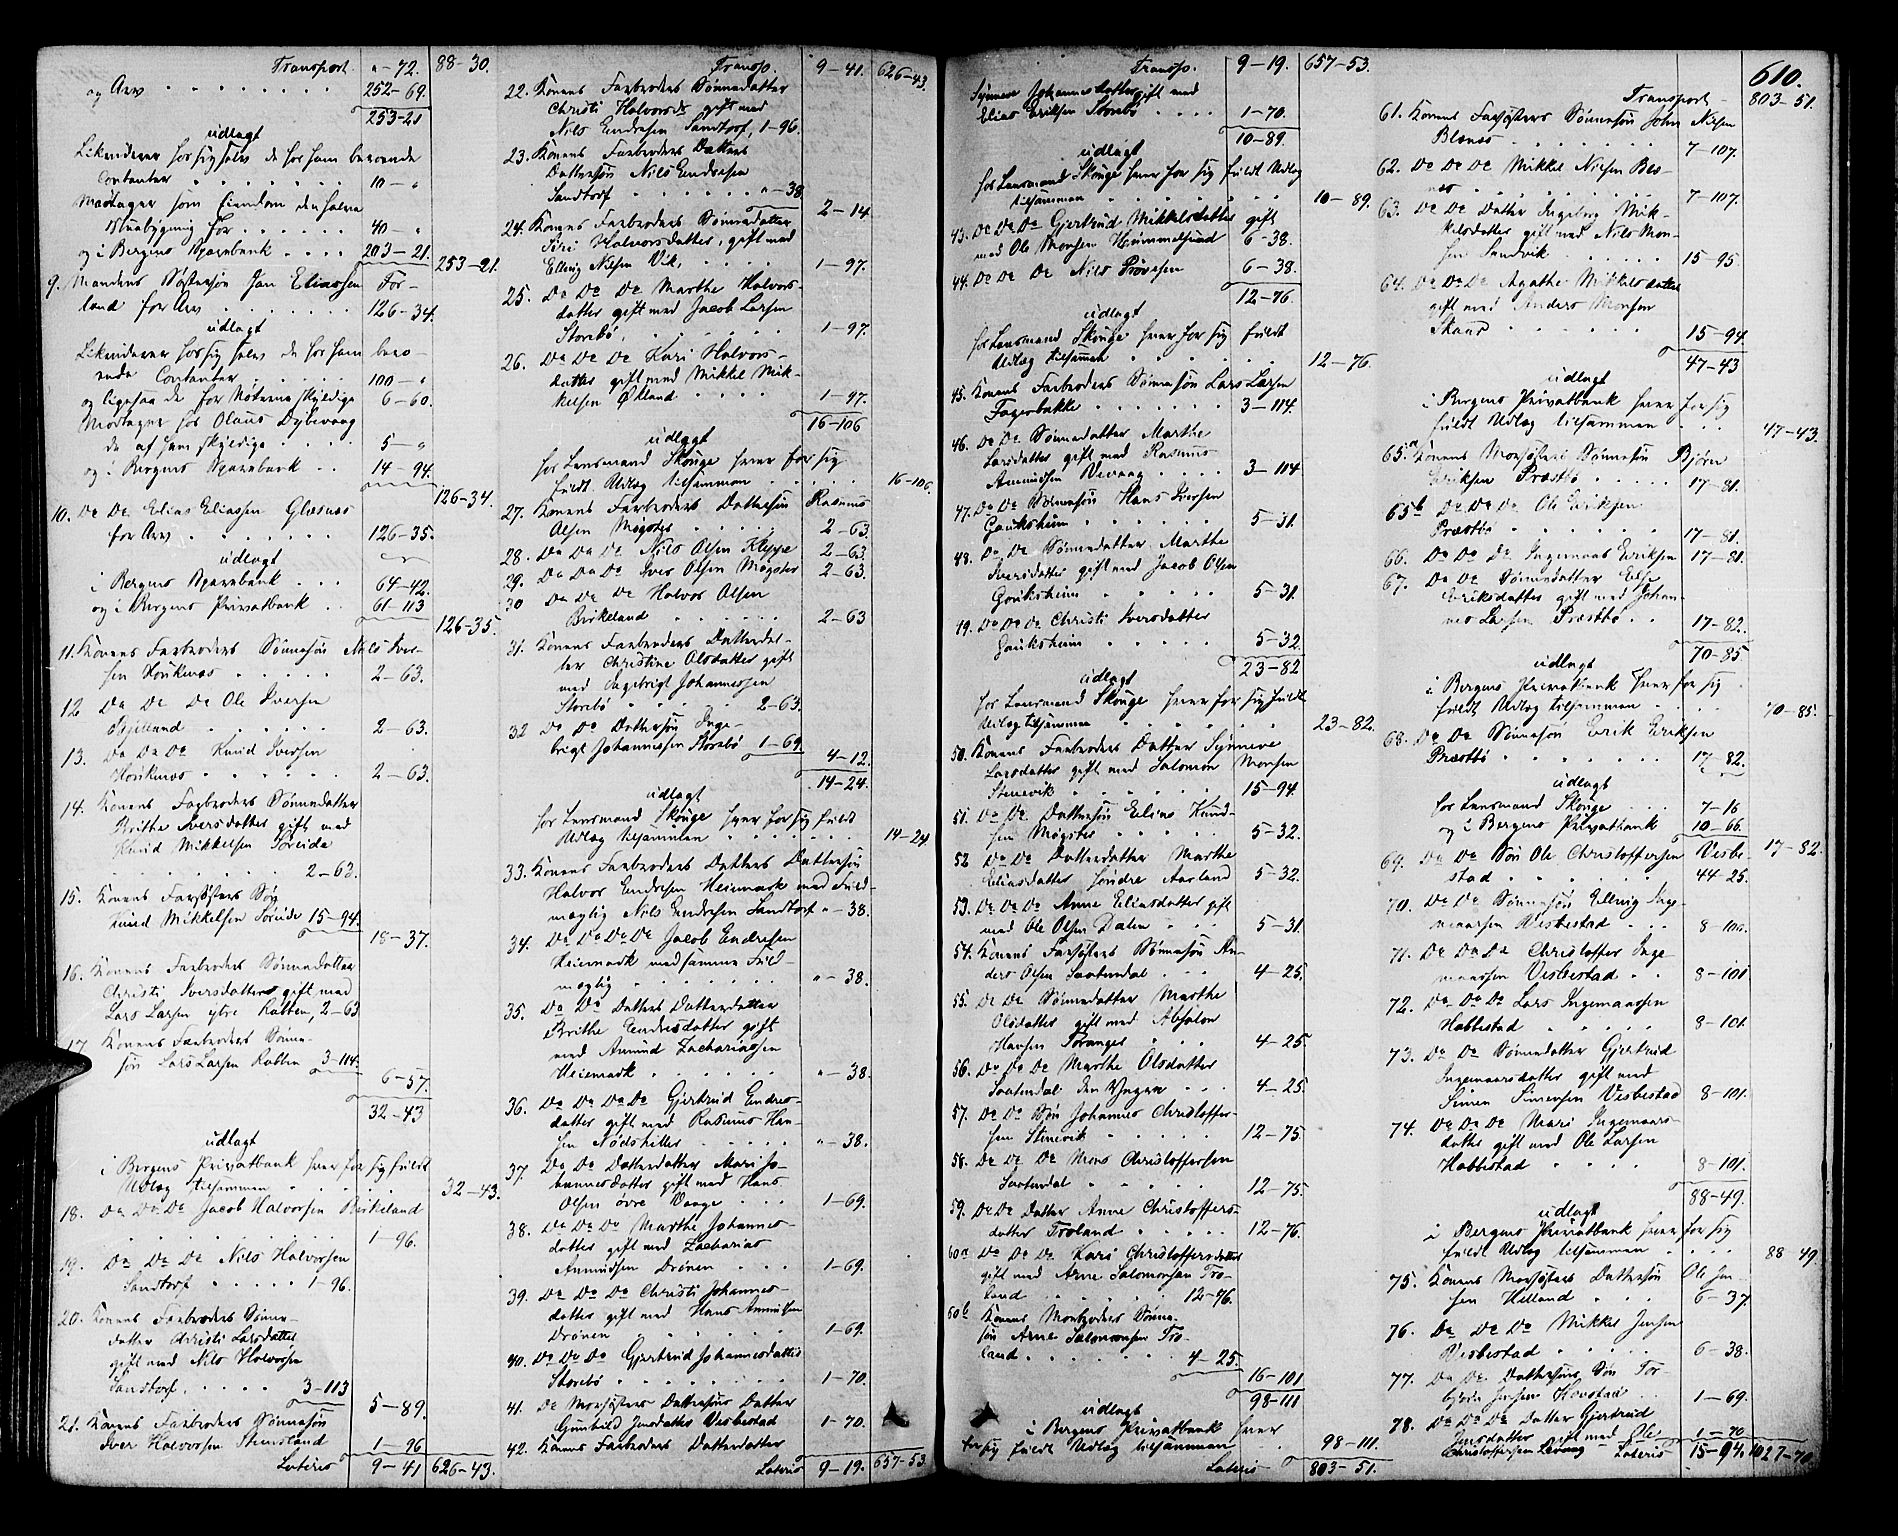 Transport. "-72. 88-30.
og Arv 252-69.
253-21
udlagt
Likviderer hos sig selv de hos ham beroende
Contanter 10-"
Modtager som Eiendom den halve
Nuabygning for 40-"
og i Bergens Sparebank 203-21. 253-21.
9. Mandens Søstersøn Jan Eliassen For-
land for Arv 126-34.
udlagt
Likviderer hos sig selv de hos ham bero-
ende Contanter 100-"
og ligesaa de for Nøterne skyldige 6-60.
Modtager hos Olaus Dybevaag
de af ham skyldige 5-"
og i Bergens Sparebank 14-94.
126-34.
10. Do Do Elias Eliassen Glæsnæs
for Arv 126-35.
udlagt
i Bergens Sparebank 64-42.
og i Bergens Privatbank 61-113
126-35.
11. Konens Farbroders Sønnesøn Nils Iver-
sen Haukenæs 2-63.
12 Do Do Do Ole Iversen
Gjelland 2-63.
13. Do Do Do Knud Iversen
Haukenæs 2-63.
14. Konens Farbroders Sønnedatter
Brithe Iversdatter gift med
Knud Mikkelsen Toreide
2-62.
15. Konens Farsøsters Søn
Knud Mikkelsen Toreide 15-94.
18-37.
16. Konens Farbroders Sønnedatter
Christi Iversdatter gift med
Lars Larsen ytre Rabben, 2-63
17. Konens Farbroders Sønne-
søn Lars Larsen Rabben 3-114.
6-57.
32-43
udlagt
i Bergens Privatbank hver for sig fuldt
Udlæg tilsammen 32-43.
18. Do Do Do Jacob Halvorsen Birkeland
1-96.
19. Do Do Do Nils Halvorsen
Sandtorf 1-96.
20. Konens Farbroders Sønne-
datter Christi Larsdatter
gift med Nils Halvorsen
Sandtorf, 3-113
5-89.
21. Konens Farbroders Sønnesøn
Iver Halvorsen Stensland 1-96
Lateris 9-41 626-43.
Transp. 9-41. 626-43.
22. Konens Farbroders Sønnedatter
Christi Halvorsdr gift med
Nils Endresen Sandtorf, 1-96.
23. Konens Farbroders Datters
Dattersøn Nils Endresen
Sandtorf "-38.
2-14.
24. Konens Farbroders Sønnedatter
Siri Halvorsdatter, gift med
Elling Nilsen Vik, 1-97.
25. Do Do Do Marthe Halvors-
datter gift med Jacob Larsen
Storebø, 1-97.
26. Do Do Do Kari Halvors-
datter gift med Mikkel Mik-
kelsen Økland 1-97.
16-106
udlagt
hos Lensmand Skouge hver for sig
fuldt Udlæg tilsammen 16-106.
27. Konens Farbroders Dattersøn Rasmus
Olsen Møgster 2-63.
28. Do Do Do Nils Olsen Kleppe 2-63
29. Do Do Do Iver Olsen Møgster 2-63.
30 Do Do Do Halvor Olsen
Birkeland 2-63
31. Konens Farbroders Datterdat-
ter Christine Olsdatter gift
med Ingebrigt Johannessen
Storebø 2-63.
32 Do Do Dattersøn Inge-
brigt Johannessen Storebø 1-69.
4-12.
14-24.
udlagt
hos Lensmand Skouge hver for sig fuldt
Udlæg tilsammen 14-24
33. Konens Farbroders Datters Dattersøn
Halvor Endresen Heiemark med Fuld-
mægtig Nils Endresen Sandtorf "-38.
34. Do Do Do Do Jacob Endresen
Heiemark med samme Fuld-
mægtig "-38.
35. Do Do Datters Datterdatter
Brithe Endresdatter gift
med Amund Zachariassen
Heiemark "-38.
36. Do Do Do Do Gjertrud Endres-
datter gift med Rasmus Han-
sen Nødshilter "-38.
37. Do Do Datterdatter Mari Jo-
hannesdatter gift med Hans
Olsen øvre Vaage 1-69.
38. Do Do Do Marthe Johannes-
datter gift med Zacharias
Amundsen Drønen 1-69.
39. Do Do Do Christi Johannes-
datter gift med Hans Amundsen
Drønen 1-69.
40. Do Do Do Gjertrud Johannesdatter
Storebø 1-70.
41. Do Morsøsters Dattersøns Datter
Gunhild Jensdatter Vesbestad 1-70.
42. Konens Farbroders Datterdatter
Lateris 9-19. 657-53.
Transp. 9-19. 657-53.
Synneve Johannesdatter gift med
Elias Eriksen Storebø 1-70.
10-89.
udlagt
hos Lensmand Skouge hver for sig fuldt Udlæg
tilsammen 10-89.
43. Do Do Do Gjertrud Mikkelsdatter gift
med Ole Monsen Hummelsund 6-38.
44. Do Do Do Nils Prøvesen 6-38.
12-76.
udlagt
hos Lensmand Skouge hver for sig fuldt
Udlæg tilsammen 12-76.
45. Konens Farbroders Sønnesøn Lars Larsen
Fagerbakke 3-114.
46. Do Do Sønnedatter Marthe
Larsdatter gift med Rasmus
Amundsen Vevaag 3-104
47. Do Do Sønnesøn Hans Iversen
Gauksheim 5-31.
48. Do Do Sønnedatter Marthe
Iversdatter gift med Jacob Olsen
Gauksheim 5-31.
49. Do Do Do Christi Iversdatter
Gauksheim 5-32.
23-82
udlagt
hos Lensmand Skouge hver for sig fuldt
Udlæg tilsammen 23-82.
50. Konens Farbroders Datter Synneve
Larsdatter gift med Salomon Monsen
Stenevik 15-94.
51. Do Do Dattersøn Elias Knud-
sen Møgster 5-32.
52 Do Do Datterdatter Marthe
Eliasdatter søndre Aarland 5-32.
53. Do Do Do Anne Eliasdatter gift
med Ole Olsen Dalen 5-31.
54. Konens Farsøsters Sønnesøn An-
ders Olsen Sortendal 4-25.
55. Do Do Sønnedatter Marthe
Olsdatter gift med Absalon
Hansen Toranger 4-25.
56. Do Do Do Marthe Olsdatter
Sortendal den Yngre 4-25.
57. Do Do Søn Johannes Christoffer-
sen Stenevik 12-75.
58. Do Do Do Mons Christoffersen
Sortendal 12-75.
59. Do Do Datter Anne Christoffers-
datter Troland 12-76.
60a Do Do Do Kari Christoffersdatter
gift med Arne Salomonsen Tro-
land 12-76.
60b Konens Morbroders Sønne-
søn Arne Salomonsen Tro-
land 4-25.
16-101
98-111
udlagt
i Bergens Privatbank hver
for sig fuldt Udlæg tilsammen 98-111.
Lateris 803-51.
610.
Transport 803-51.
61. Konens Farsøsters Sønnesøn John Nilsen
Blænæs 7-107.
62. Do Do Do Mikkel Nilsen Blæ-
næs 7-107.
63. Do Do Datter Ingeborg Mik-
kelsdatter gift med Nils Mon-
sen Sandvik 15-95
64. Do Do Do Agathe Mikkelsdatter
gift med Anders Monsen
Skaar 15-94.
47-43
udlagt
i Bergens Privatbank hver for sig
fuldt Udlæg tilsammen 47-43.
65a Konens Morsøsters Sønnesøn Bjørn
Eriksen Præstbø 17-81.
65b Do Do Do Ole Eriksen
Præstbø 17-81.
66. Do Do Do Ingemaar Eriksen 17-81.
67. Do Do Sønnedatter Else
Eriksdatter gift med Johan-
nes Larsen Præstbø 17-82.
70-85.
udlagt
i Bergens Privatbank hver for sig
fuldt Udlæg tilsammen 70-85.
68. Do Do Sønnesøn Erik Eriksen
Præstbø 17-82.
udlagt
hos Lensmand Skouge 7-16
og i Bergens Privatbank 10-66.
17-82.
69. Do Do Søn Ole Christoffersen Vesbe-
stad 44-25.
70. Do Do Sønnesøn Elling Inge-
maarsen Vesbestad 8-100.
71. Do Do Do Christoffer Inge-
maarsen Vesbestad 8-101
72. Do Do Do Lars Ingemaarsen
Habbestad 8-101.
73. Do Do Sønnedatter Gjertrud
Ingemaarsdatter gift med
Simen Simensen Vesbestad 8-101.
74. Do Do Do Mari Ingemaars-
datter gift med Ole Larsen
Habbestad 8-101.
88-49.
udlagt
i Bergens Privatbank hver for sig
fuldt Udlæg tilsammen 88 49.
75. Konens Morsøsters Dattersøn Ole Jen-
sen Helland 6-37.
76. Do Do Do Mikkel Jensen
Vesbestad 6-38.
77. Do Do Dattersøns Søn Tor-
bjørn Jensen Havstad 1-69.
78. Do Do Do Datter Gjertrud
Jensdatter gift med Ole 1-70
Christoffersen Lateris 15-94. 1027-70.